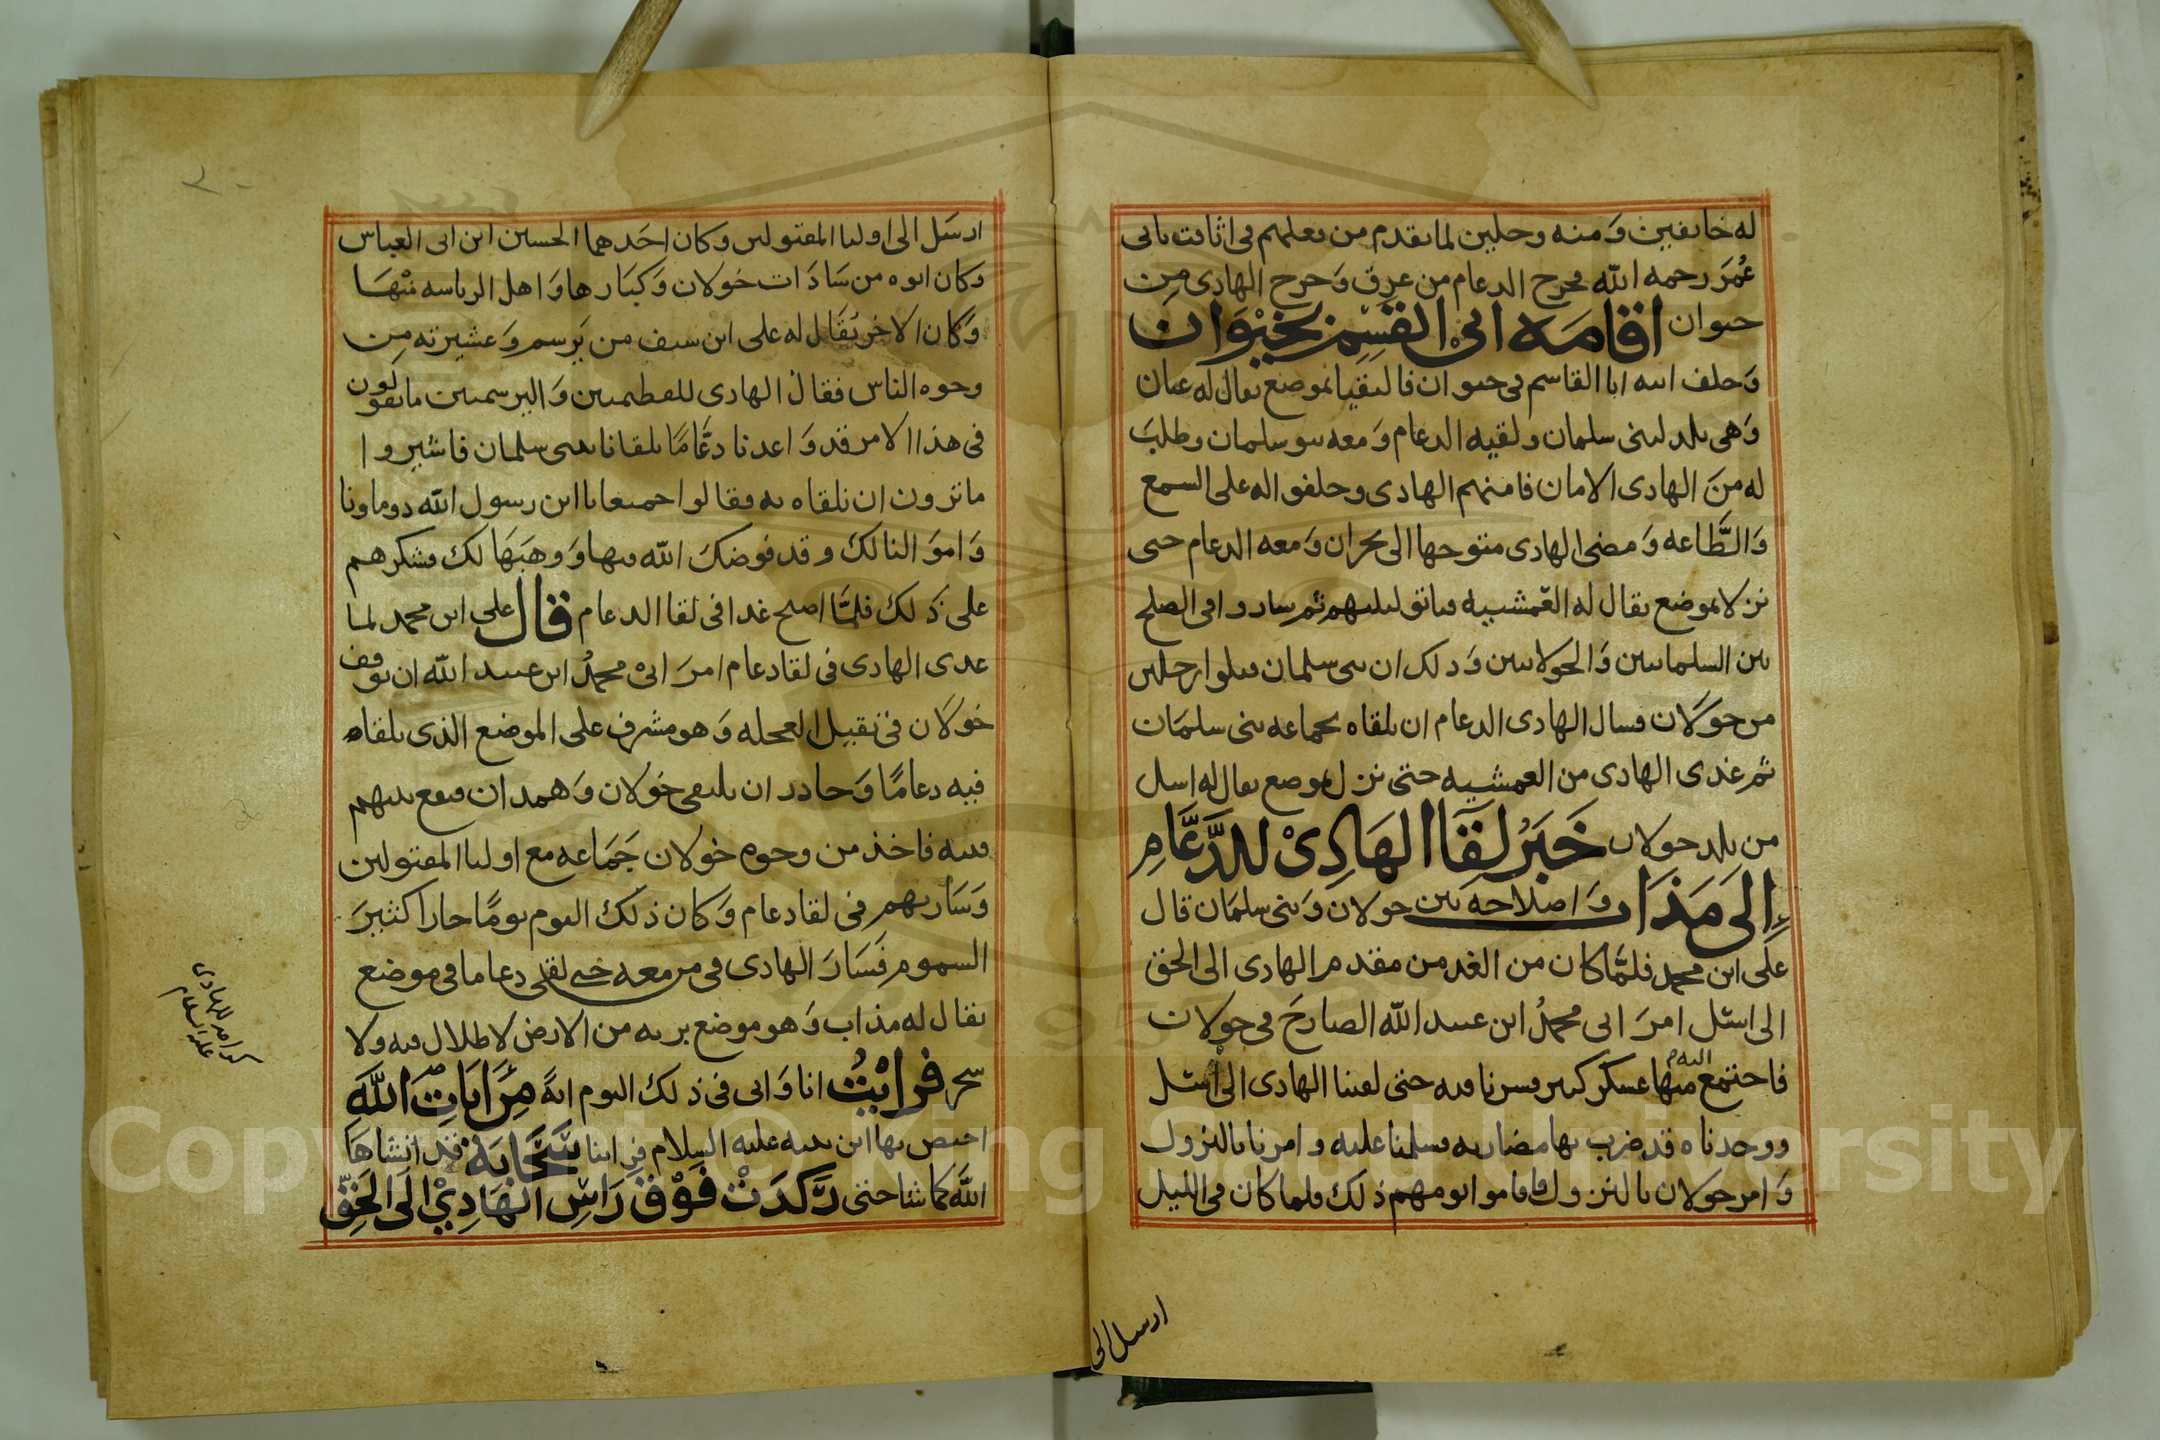 له خائفين ومنه وجلين لما تقدم من فعلهم في اثافت بابي
عُمَر رحمه الله فخرج الدعام من عرق وَخرج الهادي من
حيوان اقامه ابي القسم بخيْوان
وَخلف ابنه ابا القاسم في حيوان فالتقيا بموضع يقال له عيان
وَهي بلد لبني سلمان ولقيه الدعام وَمعه بنو سلمان وطلبَ
له منَ الهادي الامان فامنهم الهادي وحلفوا له على السمع
وَالطَّاعه وَمضى الهادي متوجها الى نجران وَمعه الدعام حتى
نزلا بموضع يقال له العَمشيه فباتو ليلتهم ثم ساروا في الصلح
بين السلمانيين وَالخولانيين وَذلك ان بني سلمان قتلوا رجلين
من خولان فسال الهادي الدعام ان يلقاه بجماعه بني سلمان
ثم غدى الهادي من العمشيه حتى نزل بموضع يقال له اسل
من بلد خولان خَبَرُ لِقَآ الهَادِيْ للدَّعَّامِ
اِلَى مَذَاب وَاصلاحه بين خولان وَبني سلمَان قال
علَى ابن محمد فلمَّا كان من الغد من مقدم الهادي الى الحق
الى اسل امرَ ابي محمدُ ابن عبيد الله الصارخَ في خولان
فاجتمع اليه منها عسكر كبير فسرنا فيه حتى لقينا الهادي الى اسل
ووجدناه قد ضرب بها مضاربه فسلمنا عليه وامرنا بالنزول
وَامر خولان بالنزول فاقاموا يومهم ذلك فلما كان في الليل
ارسل الى
ارسَل الى اوليا المقتولين وكان احَدهما الحسين ابن ابي العباس
وَكان ابوه من سَادَات خولان وَكبَارها وَاهل الرياسه منْهَا
وَكان الاخر يقَال له علي ابن سيف من يَرسم وَعشيرته من
وجوه الناس فقال الهادي للفطيميين وَاليرسميين ما تقولون
في هذا الامر قد وَاعدنا دعَّامًا يلقانا ببني سلمان فاشيروا
ما ترون ان نلقاه به فقالوا جميعا يا ابن رسول الله دوماونا
وَاموَالنا لك وقد فوضكَ الله فيها وَوهبَهَا لك فشكرهم
على ذَلك فلمَّا اصبح غدا في لقا الدعام قال علي ابن محمد لما
غدى الهادي في لقا دعام امرَ ابيْ محمدُ ابن عبيد الله ان توقف
خولَان في نقيل العجله وَهو مشرف على الموضع الذي يلقاه
فيه دعامًا وَحاذر ان يلتقي خولان وَهمدان فيقع بينهم
فتنه فاخذ من وجوه خولان جَمَاعه مع اوليا المقتولين
وَسَار بهم في لقا دعام وَكان ذلك اليوم يومًا حارا كثيرَ
السموم فَسَارَ الهادي في من معه حتى لقي دعاما في موضع
يقال له مذاب وَهو موضع بريه من الارض لا طلال فيه ولا
شجر فرايْتُ انا وَابي في ذلك اليوم ايهً مِن ايَاتِ اللَه
اختص بها ابن نبيه عليه السلام فراينا سَحَابَة قد انشاهَا
اللَه كما شا حتى رَكدَتْ فَوْق رَاسِ الهَادِيْ الَى الحَقِّ
كرامه للهادي
عليه السلام